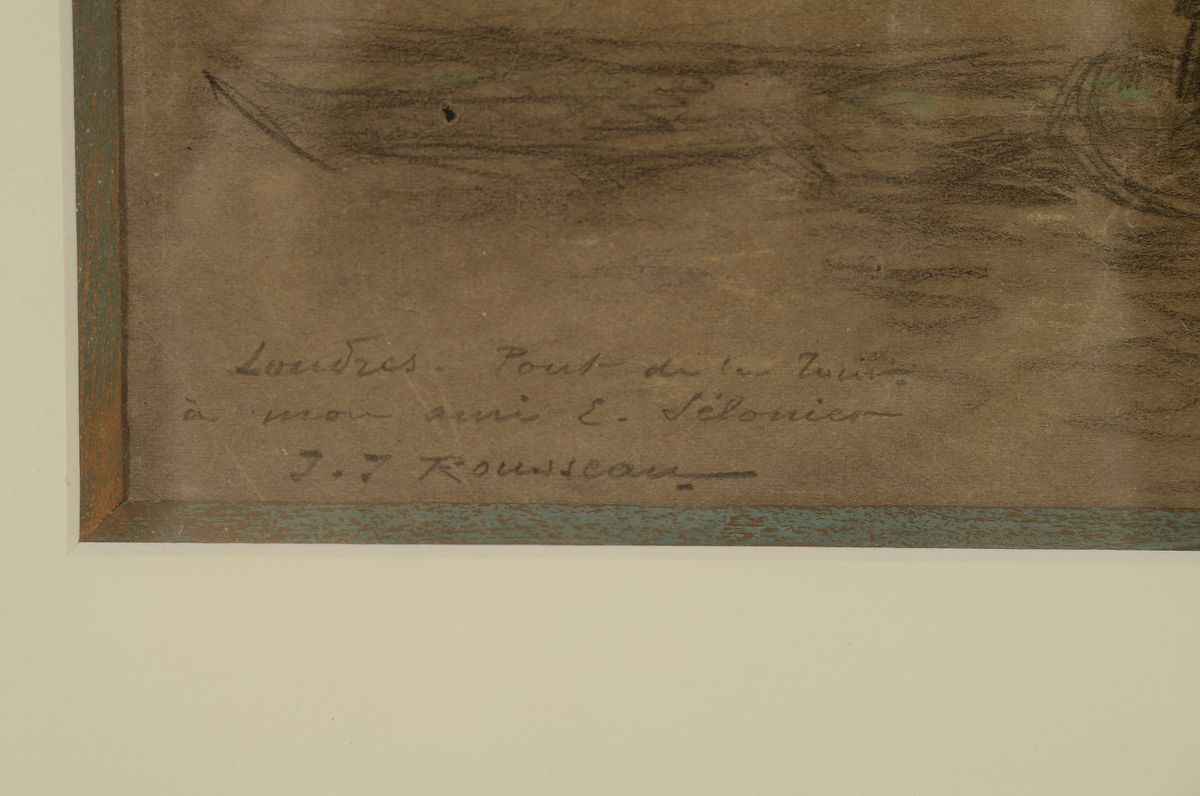 Londres. Pont de la Tour
à mon ami E. Sélonier
J. J Rousseau